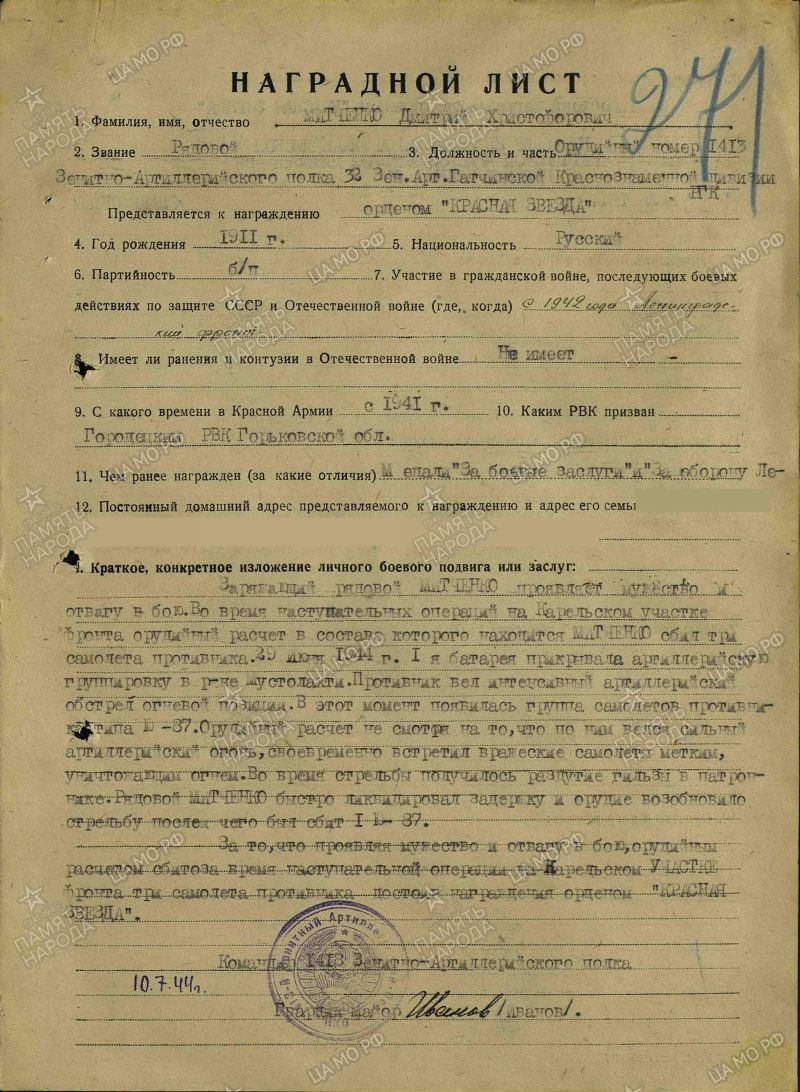 НАГРАДНОЙ ЛИСТ
271
1. Фамилия, имя, отчество Дмитрий Христофорович
2. Звание Рядовой 3. Должность и часть Орудийный номер 1413
Зенитно-Артиллерийского полка 32 Зен.Арт.Гатчинской Краснознаменной дивизии
РГК
Представляется к награждению орденом "КРАСНАЯ ЗВЕЗДА"
4. Год рождения 1911 г. 5. Национальность Русский
6. Партийность б/п 7. Участие в гражданской войне, последующих боевых
действиях по защите СССР и Отечественной войне (где, когда) с 1942 года Ленинград-
кий фронт
8. Имеет ли ранения и контузии в Отечественной войне Не имеет -
9. С какого времени в Красной Армии с 1941 г. 10. Каким РВК призван
Городецким РВК Горьковской обл.
11. Чем ранее награжден (за какие отличия) Медали "За боевые заслуги" и "За оборону Ле-
12. Постоянный домашний адрес представляемого к награждению и адрес его семьи
1. Краткое, конкретное изложение личного боевого подвига или заслуг:
Заряжающий рядовой проявляет мужество и
отвагу в бою. Во время наступательных операций на Карельском участке
фронта орудийный расчет в составе которого находится сбил три
самолета противника. 29 июня 1944 г. I я батарея прикрывала артиллерийскую
группировку в р-не Мустолахти. Противник вел интенсивный артиллерийский
обстрел огневой позиции. В этот момент появилась группа самолетов противни-
ка типа Ю-87. Орудийный расчет не смотря на то, что по ним велся сильный
артиллерийский огонь, своевременно встретил вражеские самолеты метким,
уничтожающим огнем. Во время стрельбы получилось раздутие гильзы в патрон-
нике. Рядовой быстро ликвидировал задержку и орудие возобновило
стрельбу после чего был сбит I Ю-87.
За то, что проявляя мужество и отвагу в бою, орудийным
расчетом сбито за время наступательной операции на Карельском УЧАСТКЕ
фронта три самолета противника достоин награждения орденом "КРАСНАЯ
ЗВЕЗДА".
Командир 1413 Зенитно-Артиллерийского полка
10.7.44г.
Гвардии майор Иванов /Иванов/.
ПАМЯТЬ НАРОДА
ЦАМО.РФ